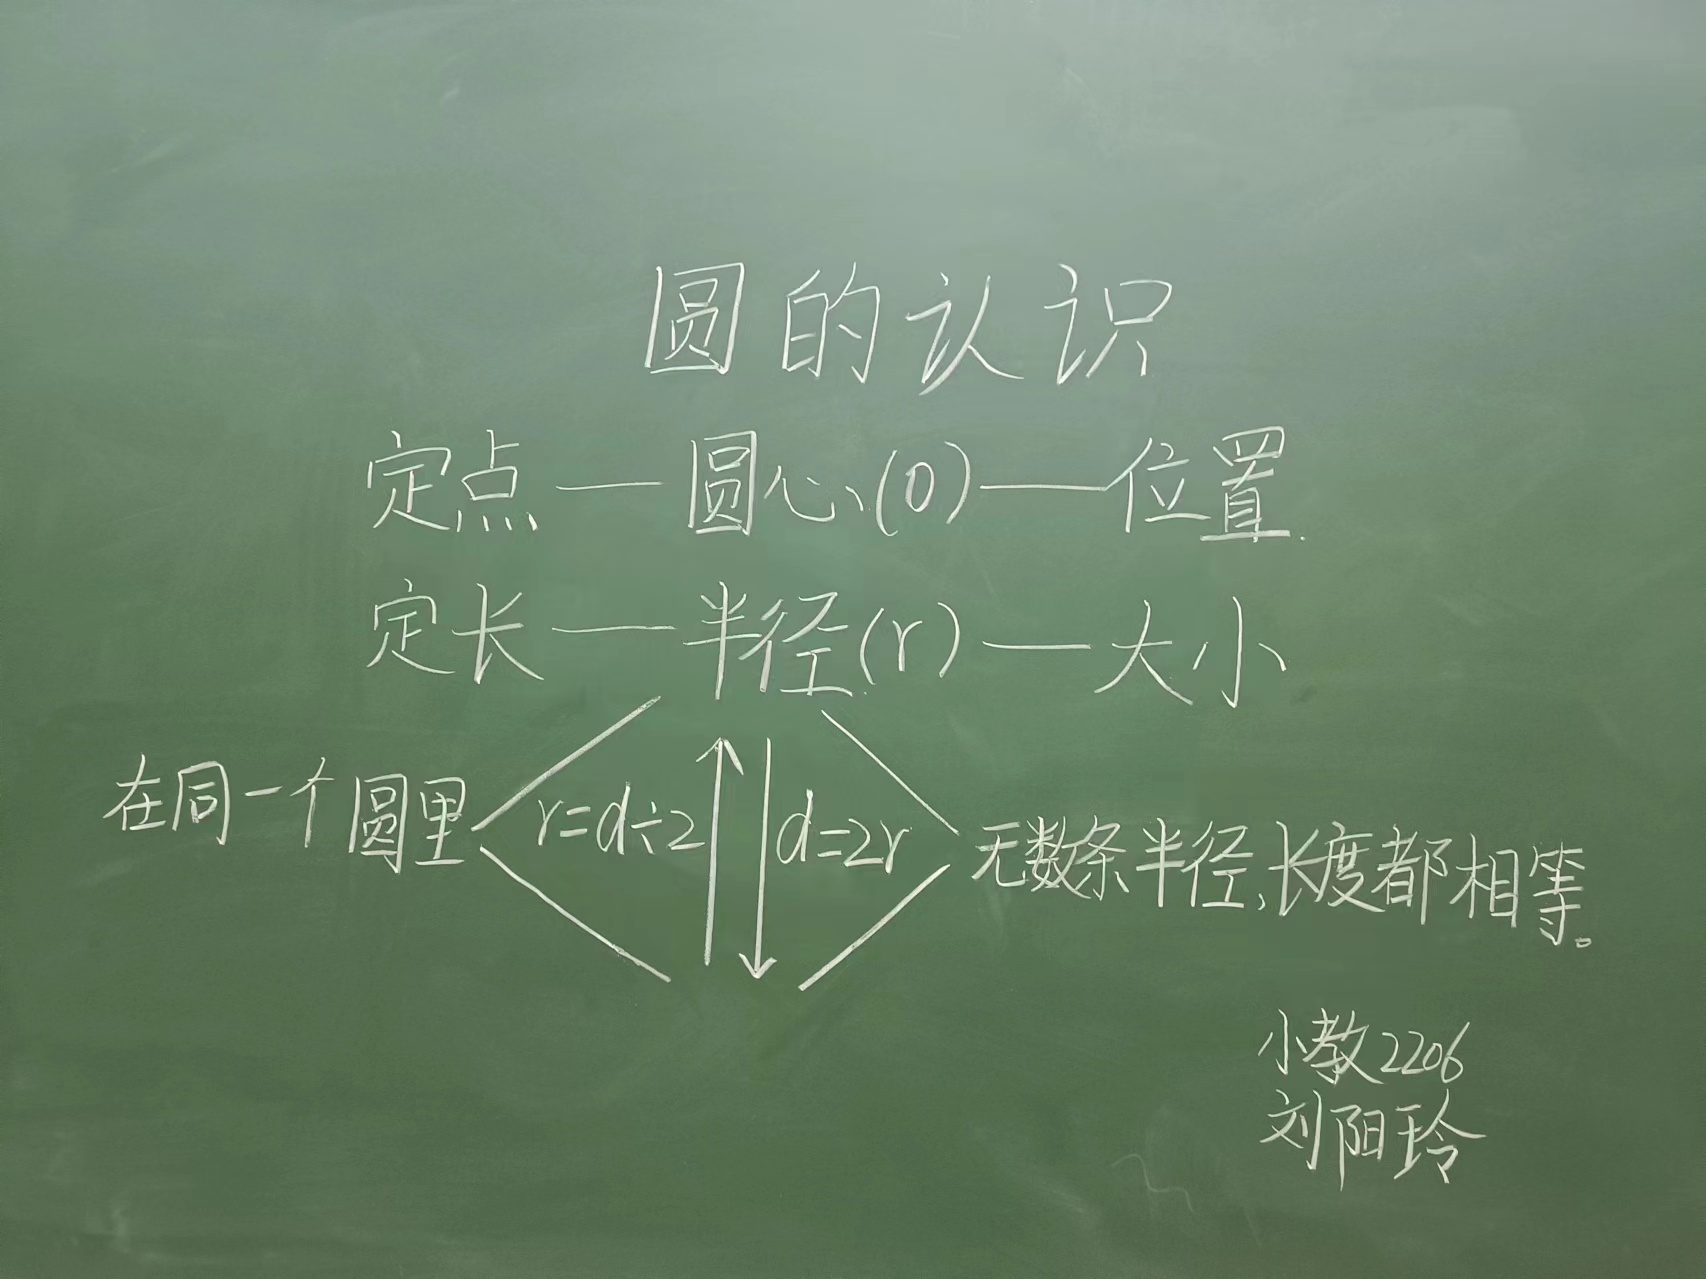 圆的认识
定点—圆心(O)—位置
定长—半径(r)—大小
在同一个圆里
r=d÷2
d=2r
无数条半径,长度都相等。
小教2206
刘阳玲